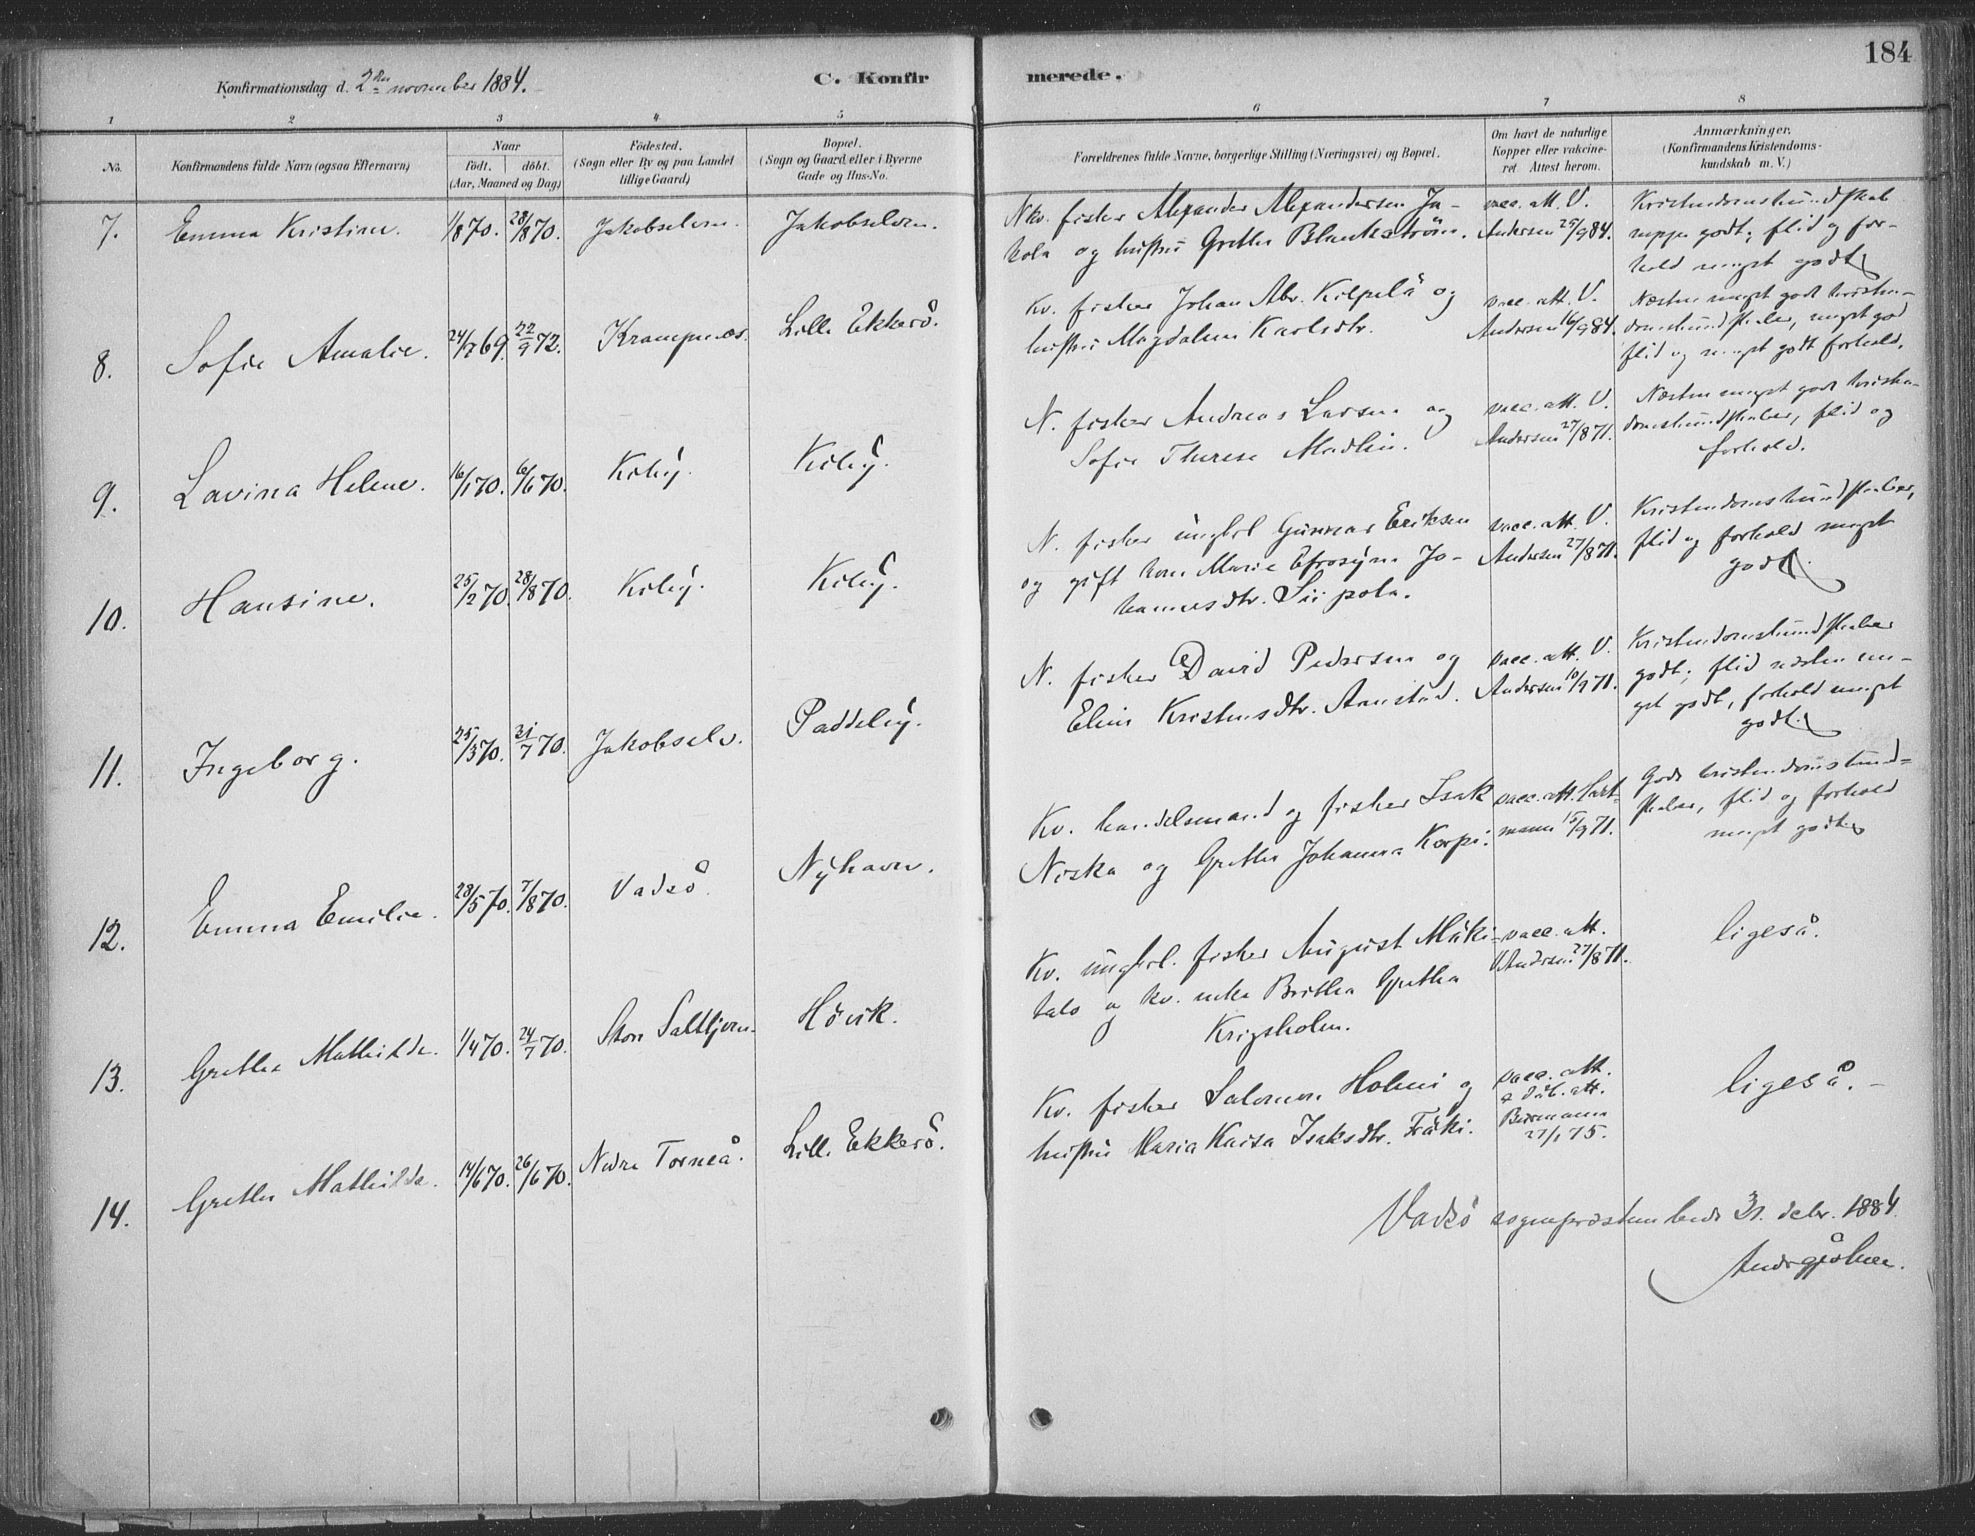 184
Konfirmationsdag d. 2den november 1884.
C. Konfirmerede.
1 2 3 4 5 6 7 8
No.
Konfirmandens fulde Navn (ogsaa Efternavn)
Naar
födt. döbt.
(Aar, Maaned og Dag)
Födested.
(Sogn eller By og paa Landet
tillige Gaard)
Bopæl.
(Sogn og Gaard eller i Byerne
Gade og Hus-No.
Forældrenes fulde Navne, borgerlige Stilling (Næringsvei) og Bopæl.
Om havt de naturlige
Kopper eller vakcine-
ret Attest herom.
Anmærkninger.
(Konfirmandens Kristendoms-
kundskab m. V.)
7. Emma Kristine. 1/8 70. 28/8 70. Jakobselven. Jakobselven.
Nkv. fisker Alexander Alexandersen Ja-
kola og hustru Grethe Blankström.
vacc. att. V.
Andersen 25/9 84.
Kristendomskundskab
neppe godt; flid og for-
hold meget godt
8. Sofie Amalie. 24/7 69. 22/9 72. Krampenæs. Lille Ekkerö.
Kv. fisker Johan Abr. Kilpelä og
hustru Magdalena Karlsdtr.
vacc. att. V.
Andersen 16/9 84.
Næsten meget godt kristen-
domskundskaber, meget god
flid og meget godt forhold.
9. Lavina Helene. 16/1 70. 6/6 70. Kiby. Kiby.
N. fisker Andreas Larsen og
Sofie Therese Madlin.
vacc. att. V.
Andersen 27/8 71.
Næsten meget godt kristen-
domskundskaber, flid og
forhold.
10. Hansine. 25/2 70. 28/8 70. Kiby. Kiby.
N. fisker ungkrl Gunnar Eriksen
og gift kone Marie Efrosyne Jo-
hannesdtr. Siipola.
vacc. att. V.
Andersen 27/8 71.
Kristendomskundskaber,
flid og forhold meget
godt.
11. Ingeborg. 25/3 70. 31/7 70. Jakobselv. Paddeby.
N. fisker David Pedersen og
Elen Kristensdtr. Aanstad.
vacc. att. V.
Andersen 10/9 71.
Kristendomskundskaber
godt; flid næsten me-
get godt, forhold meget
godt.
12. Emma Emilie. 28/5 70. 7/8 70. Vadsö. Nyhavn.
Kv. handelsmand og fisker Isak
Niska og Grethe Johanna Korpi.
vacc. att.
mann 15/9 71.
Gode kristendomskund-
skaber, flid og forhold
meget godt
13. Grethe Mathilde. 1/4 70. 24/7 70. Store Saltkjern. Hövik.
Kv. ungkrl. fisker August Mäki-
talo og kv. enke Britha Gretha
Krigsholm.
vacc. att.
V. Andersen 27/8 71.
ligeså.
14. Grethe Mathilde. 14/6 70. 26/6 70. Nedre Torneå. Lille Ekkerö.
Kv. fisker Salomon Holmi og
hustru Maria Kaisa Isaksdtr. Fräki.
vacc. att.
& döb. att.
Burmann
27/1 75.
ligeså. -
Vadsö sogneprestembede 31. debr. 1884.